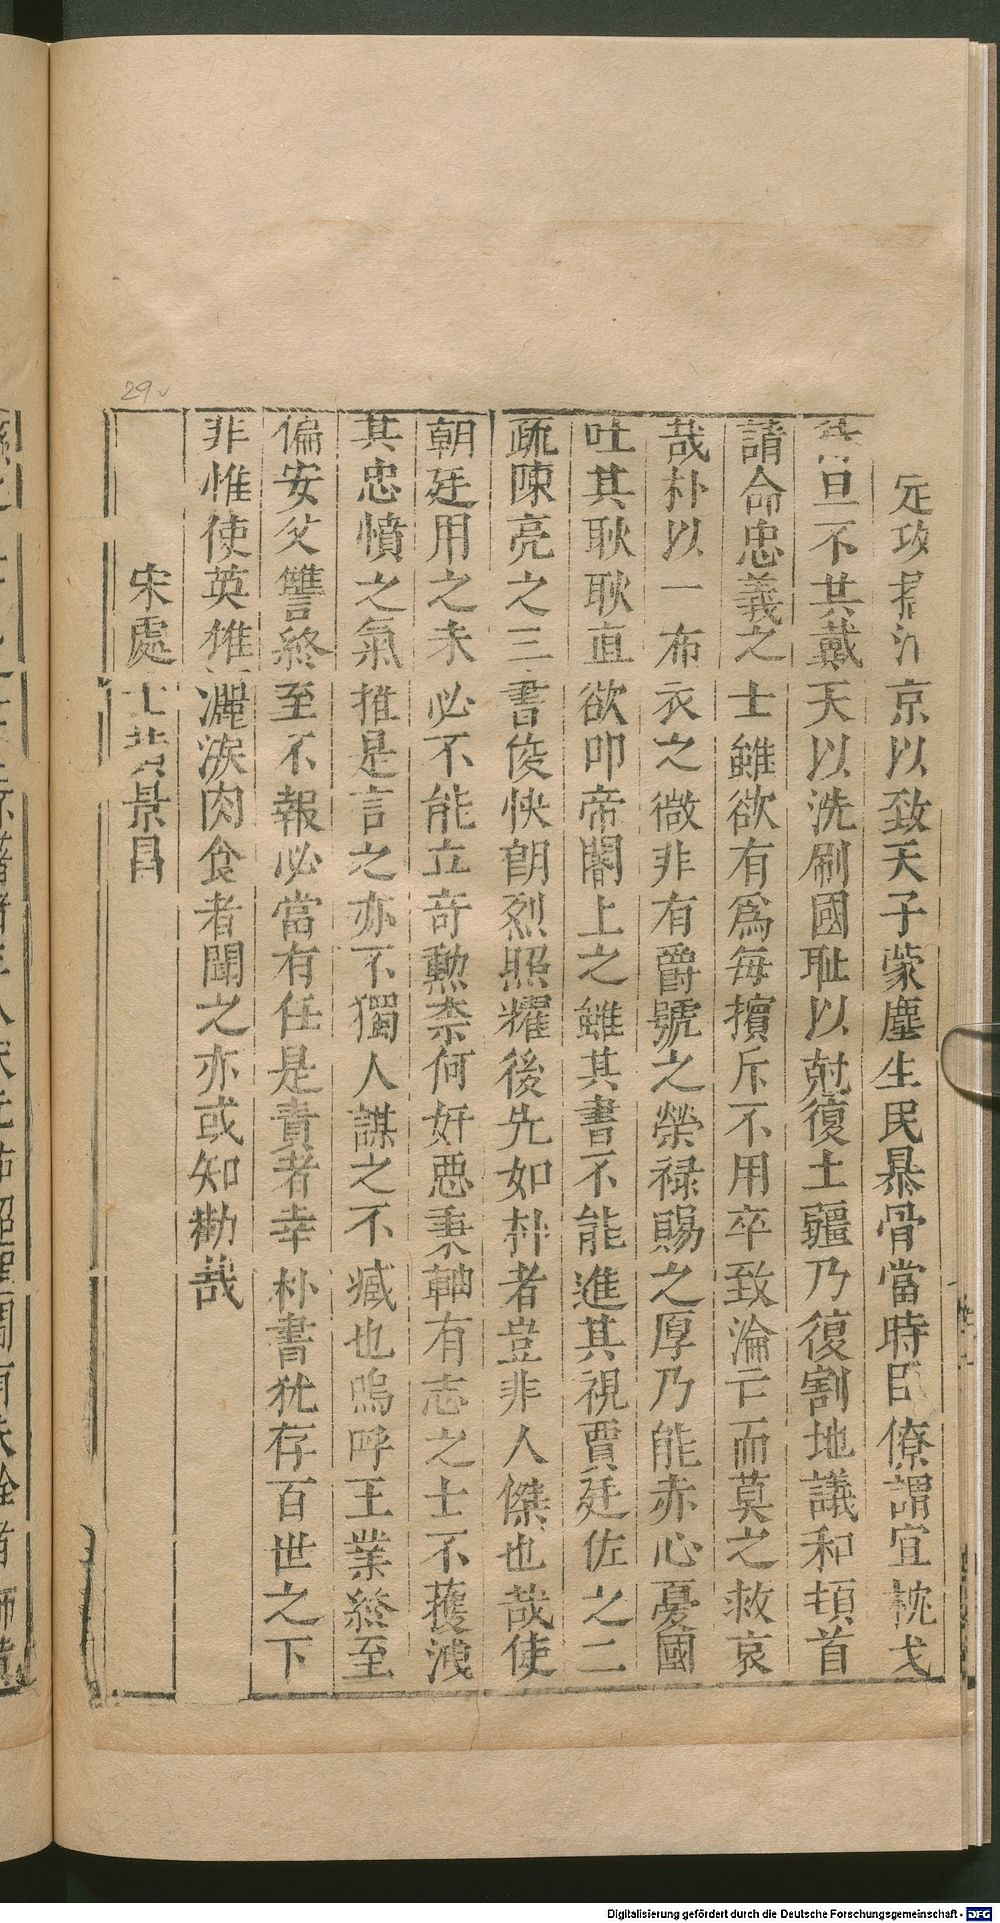 定攻掃汴京以致天子蒙塵生民暴骨當時臣僚謂宜枕戈
旦不共戴天以洗刷國耻以尅復土疆乃復割地議和頓首
請命忠義之士雖欲有爲每擯斥不用卒致淪亡而莫之救哀
哉朴以一布衣之微非有爵號之榮禄賜之厚乃能赤心憂國
吐其耿耿直欲叩帝閽上之雖其書不能進其視賈廷佐之二
疏陳亮之三書俊快朗烈照耀後先如朴者豈非人傑也哉使
朝廷用之未必不能立奇勲柰何奸惡秉軸有志之士不獲洩
其忠憤之氣推是言之亦不獨人謀之不臧也嗚呼王業終至
偏安父讐終至不報必當有任是責者幸朴書犹存百世之下
非惟使英雄灑淚肉食者聞之亦或知勸哉
宋處士黄景昌
29v
Digitalisierung gefördert durch die Deutsche Forschungsgemeinschaft - DFG